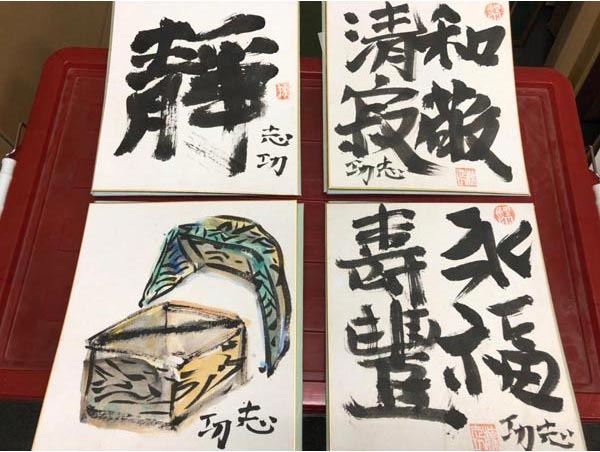 靜
志功
和敬
清寂
志功
志功
永福
壽豐
志功